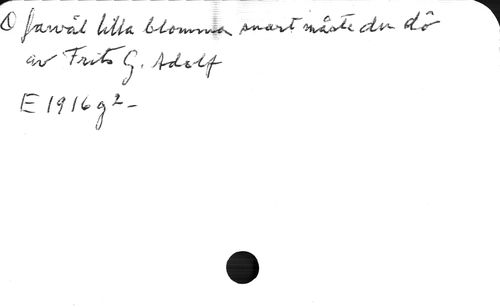 O farväl lilla blomma snart måste du dö
av Frits G. Adolf
E 1916 g² -